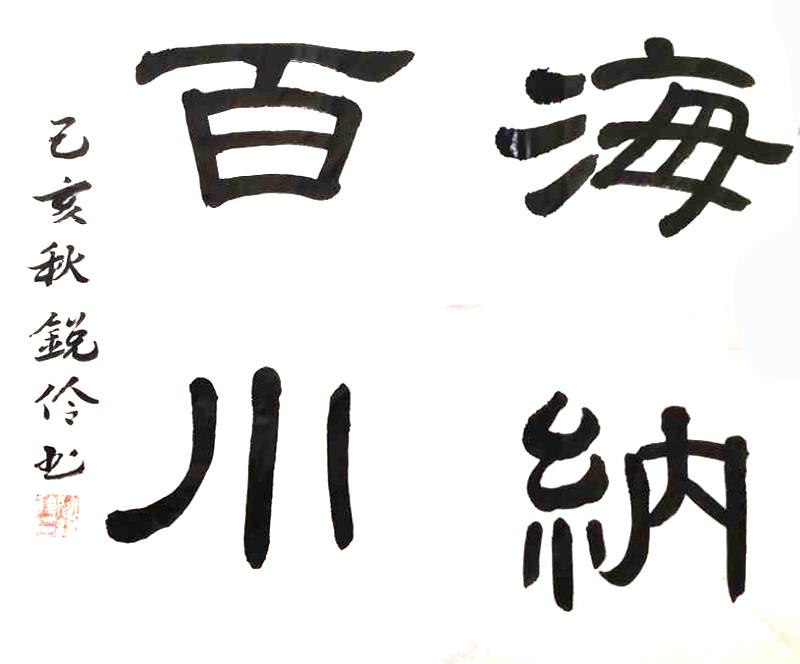 海納
百川
己亥秋銳伶书